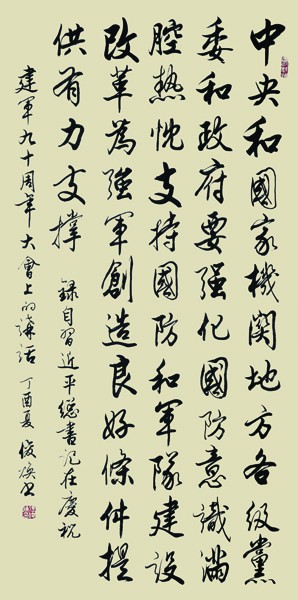 中央和國家機関地方各级黨
委和政府要强化國防意識滿
腔熱忱支持國防和軍隊建設
改革為強軍創造良好條件提
供有力支撑
錄自習近平總書记在慶祝
建軍九十周年大會上的講話 丁酉夏